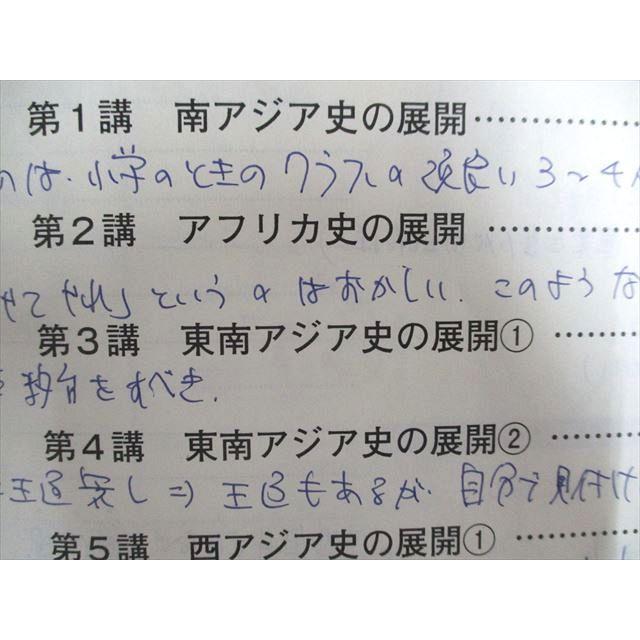 第1講 南アジア史の展開…………
のは、小学のときのクラスの 仲良い 3〜4
第2講 アフリカ史の展開…………
せてやれ」というのはおかしい. このような
第3講 東南アジア史の展開① ………
教育をすべき.
第4講 東南アジア史の展開② ………
王道 無し ⇒ 王道もあるが, 自分で見付け
第5講 西アジア史の展開① …………